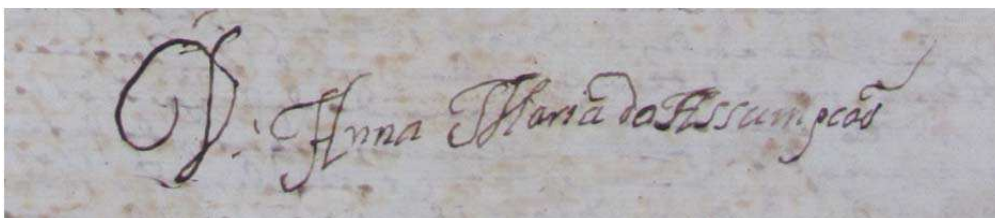 D. Anna Maria da Assumpcaõ